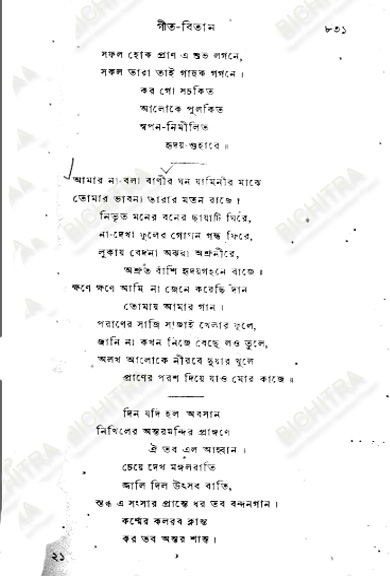 গীত-বিতান ৮৩১
সফল হোক প্রাণ এ শুভ লগনে,
সকল তারা তাই গাহুক গগনে।
কর গো সচকিত
আলোকে পুলকিত
স্বপন-নিমীলিত
হৃদয়-গুহারে॥
আমার না-বলা বাণীর ঘন যামিনীর মাঝে
তোমার ভাবনা তারার মতন রাজে।
নিভৃত মনের বনের ছায়াটি ঘিরে,
না-দেখা ফুলের গোপন গন্ধ ফিরে,
লুকায় বেদনা অঝরা অশ্রুনীরে,
অশ্রুত বাঁশি হৃদয়গহনে বাজে॥
ক্ষণে ক্ষণে আমি না জেনে করেছি দান
তোমায় আমার গান।
পরাণের সাজি সাজাই খেলার ফুলে,
জানি না কখন নিজে বেছে লও তুলে,
অলখ আলোকে নীরবে দুয়ার খুলে
প্রাণের পরশ দিয়ে যাও মোর কাজে॥
দিন যদি হল অবসান
নিখিলের অন্তরমন্দির প্রাঙ্গণে
ঐ তব এল আহ্বান।
চেয়ে দেখ মঙ্গলরাতি
জ্বালি দিল উৎসব বাতি,
স্তব্ধ এ সংসার প্রান্তে ধর তব বন্দনগান।
কর্ম্মের কলরব ক্লান্ত
কর তব অন্তর শান্ত।
২১
BICHITRA